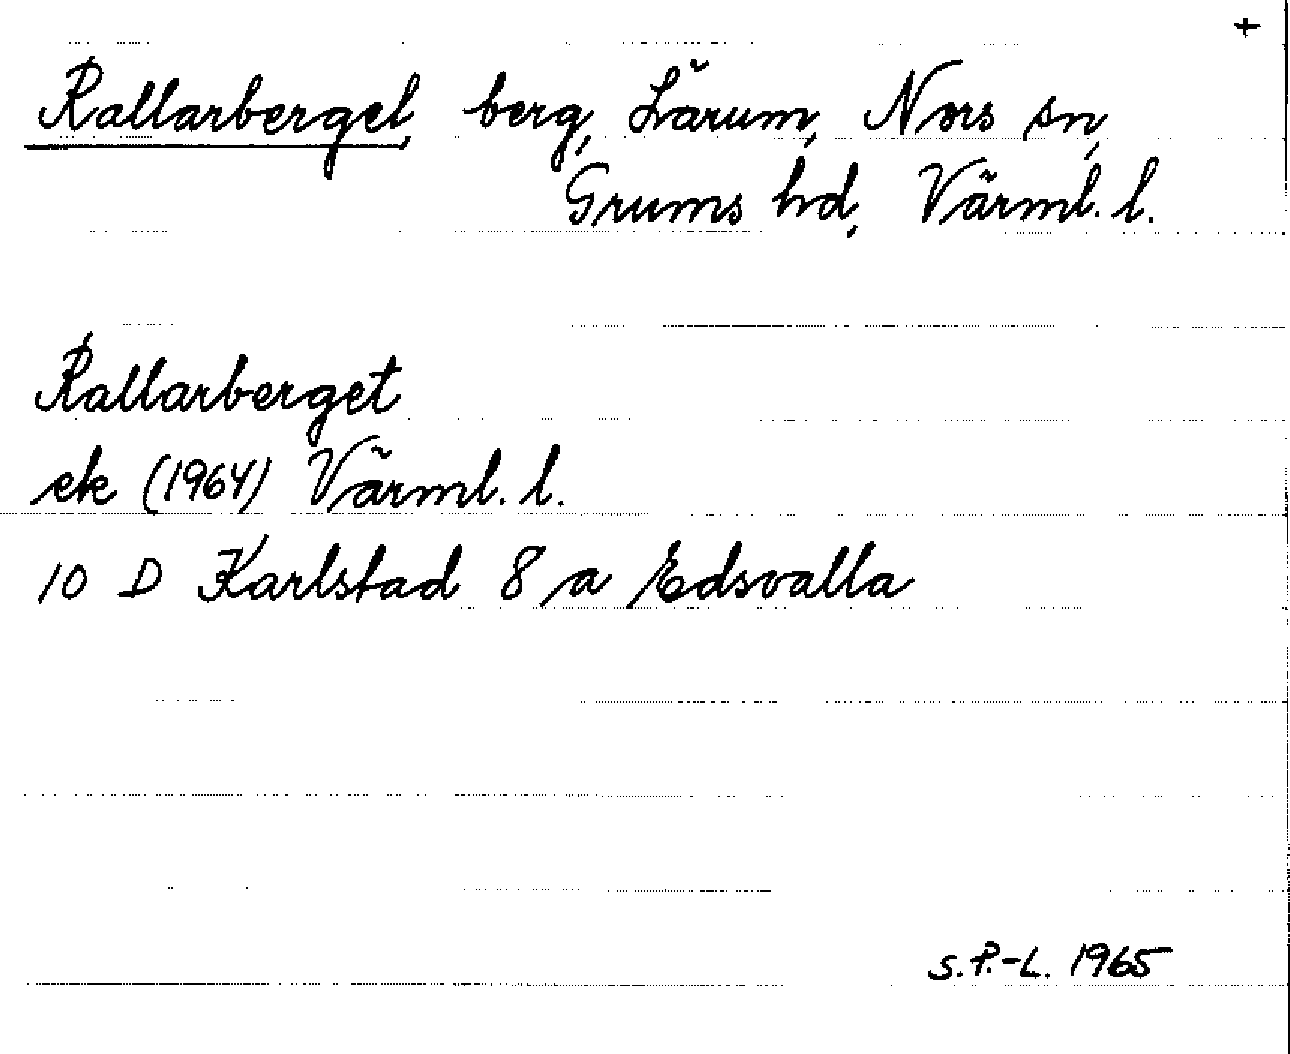 +
Rallarberget, berg, Lärum, Nors sn,
Grums hd, Värml. l.
Rallarberget
ek (1964) Värml. l.
10 D Karlstad 8 a Edsvalla
S.P.-L. 1965